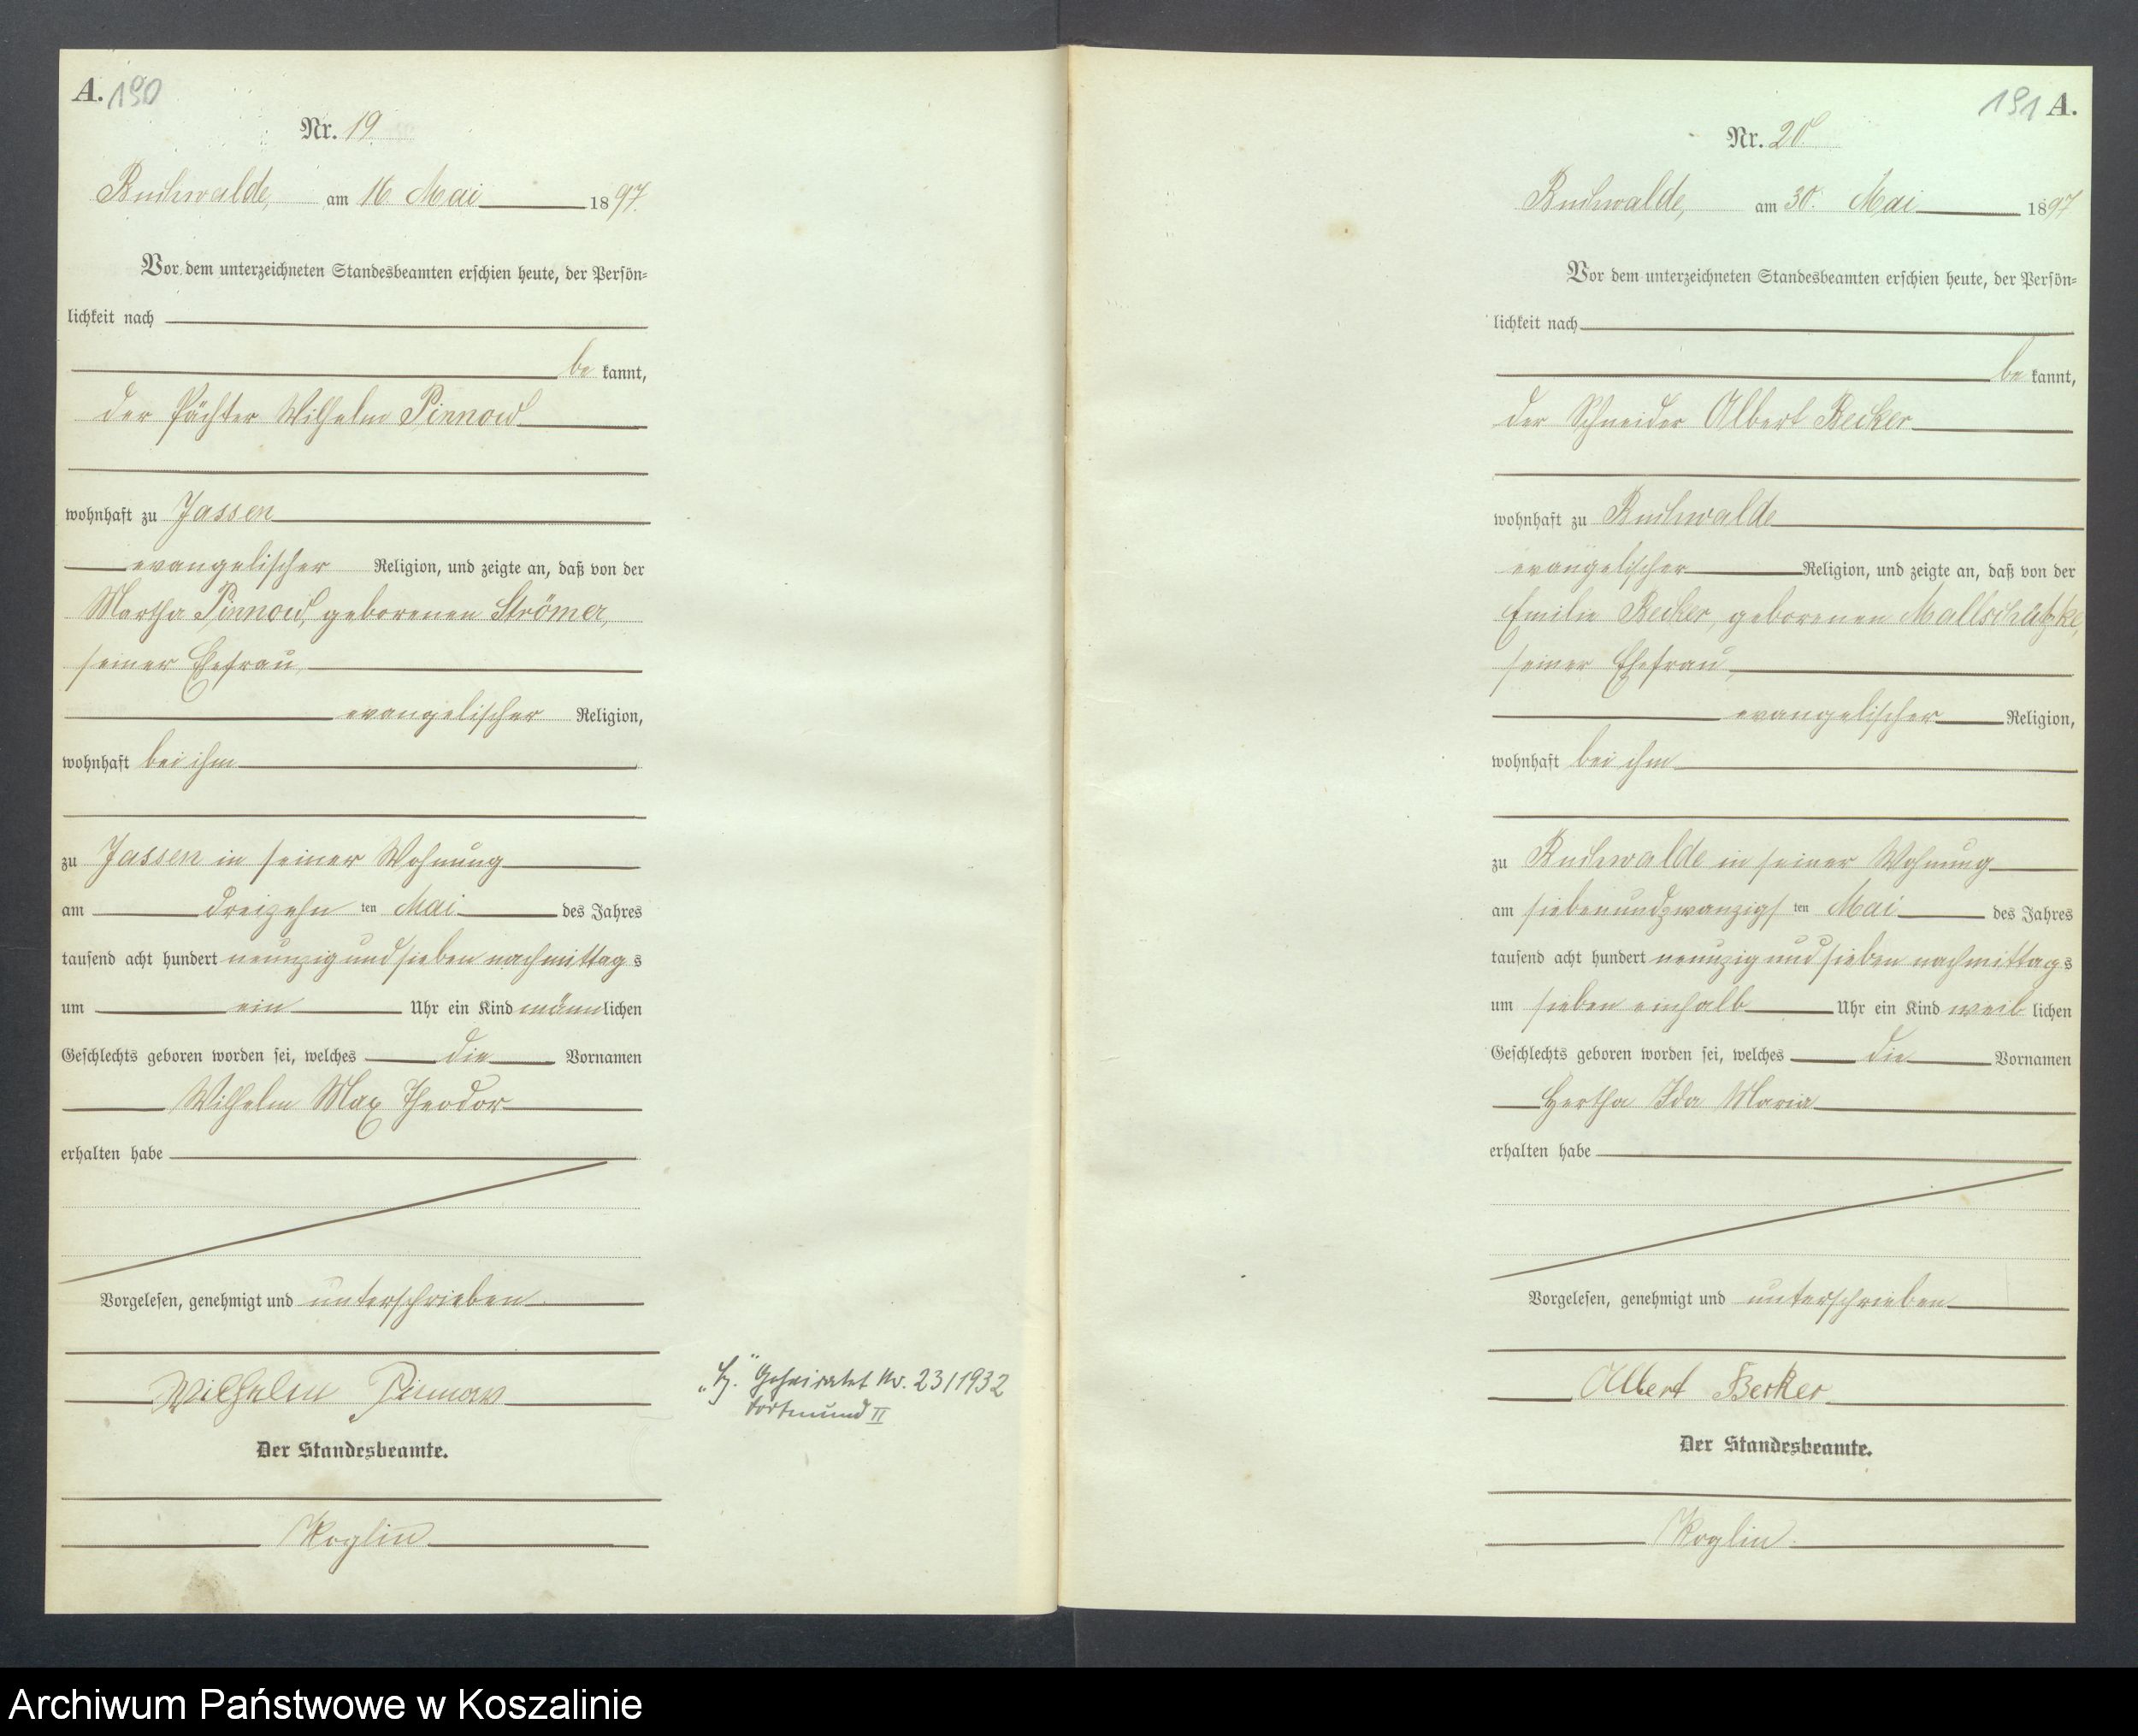 A. 190
Nr. 19.
Buchwalde, am 16. Mai 1897.
Vor dem unterzeichneten Standesbeamten erschien heute, der Persön-
lichkeit nach
be kannt,
der Pächter Wilhelm Pinnow
wohnhaft zu Jassen
evangelischer Religion, und zeigte an, daß von der
Martha Pinnow, geborenen Strömer,
seiner Ehefrau,
evangelischer Religion,
wohnhaft bei ihm
zu Jassen in seiner Wohnung
am dreizehn ten Mai des Jahres
tausend acht hundert neunzig und sieben nachmittag s
um ein Uhr ein Kind männlichen
Geschlechts geboren worden sei, welches die Vornamen
Wilhelm Max Theodor
erhalten habe
Vorgelesen, genehmigt und unterschrieben
Wilhelm Pinnow
Der Standesbeamte.
Koglin
Geheiratet Nr. 23/1932
Dortmund II
191 A.
Nr. 20.
Buchwalde, am 30. Mai 1897
Vor dem unterzeichneten Standesbeamten erschien heute, der Persön-
lichkeit nach
be kannt,
der Schneider Albert Becker
wohnhaft zu Buchwalde
evangelischer Religion, und zeigte an, daß von der
Emilie Becker, geborenen Mallschützke,
seiner Ehefrau,
evangelischer Religion,
wohnhaft bei ihm
zu Buchwalde in seiner Wohnung
am siebenundzwanzigs ten Mai des Jahres
tausend acht hundert neunzig und sieben nachmittag s
um sieben einhalb Uhr ein Kind weib lichen
Geschlechts geboren worden sei, welches die Vornamen
Hertha Ida Maria
erhalten habe
Vorgelesen, genehmigt und unterschrieben
Albert Becker
Der Standesbeamte.
Koglin.
Archiwum Państwowe w Koszalinie